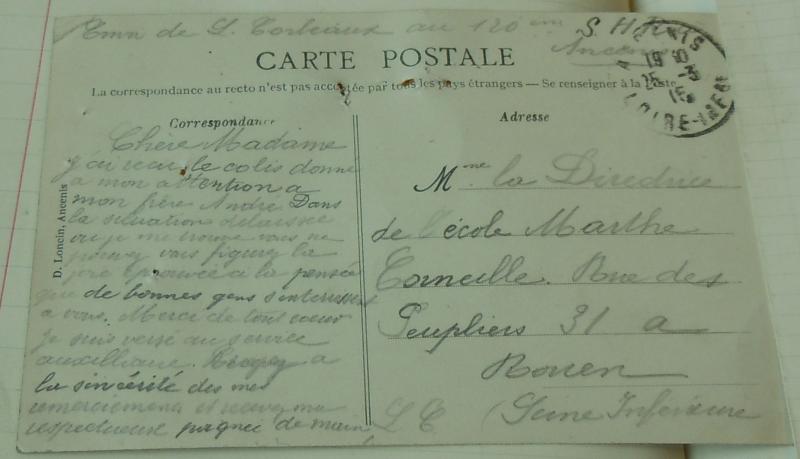 Emn de L. Corbeaux au 120 eme S. H.
Ancenis
CARTE POSTALE
La correspondance au recto n'est pas acceptée par tous les pays étrangers — Se renseigner à la Poste
ANCENIS
19
LOIRE-INFRE
Correspondance
Adresse
D. Loncin, Ancenis
Chère Madame
j'ai recu le colis donne
a mon attention a
mon frère André Dans
la situation delaissée
ou je me trouve vous ne
pouvez vous figurez la
joie éprouvée a la pensée
que de bonnes gens s'interessent
a vous. Merci de tout coeur
je suis versé au service
auxilliaire. Croyez a
la sincérité des mes
remerciements et recevez ma
respectueuse poignee de main
L C
Mme la Directrice
de l'école Marthe
Corneille. Rue des
Peupliers 31 a
Rouen
(Seine Inférieure